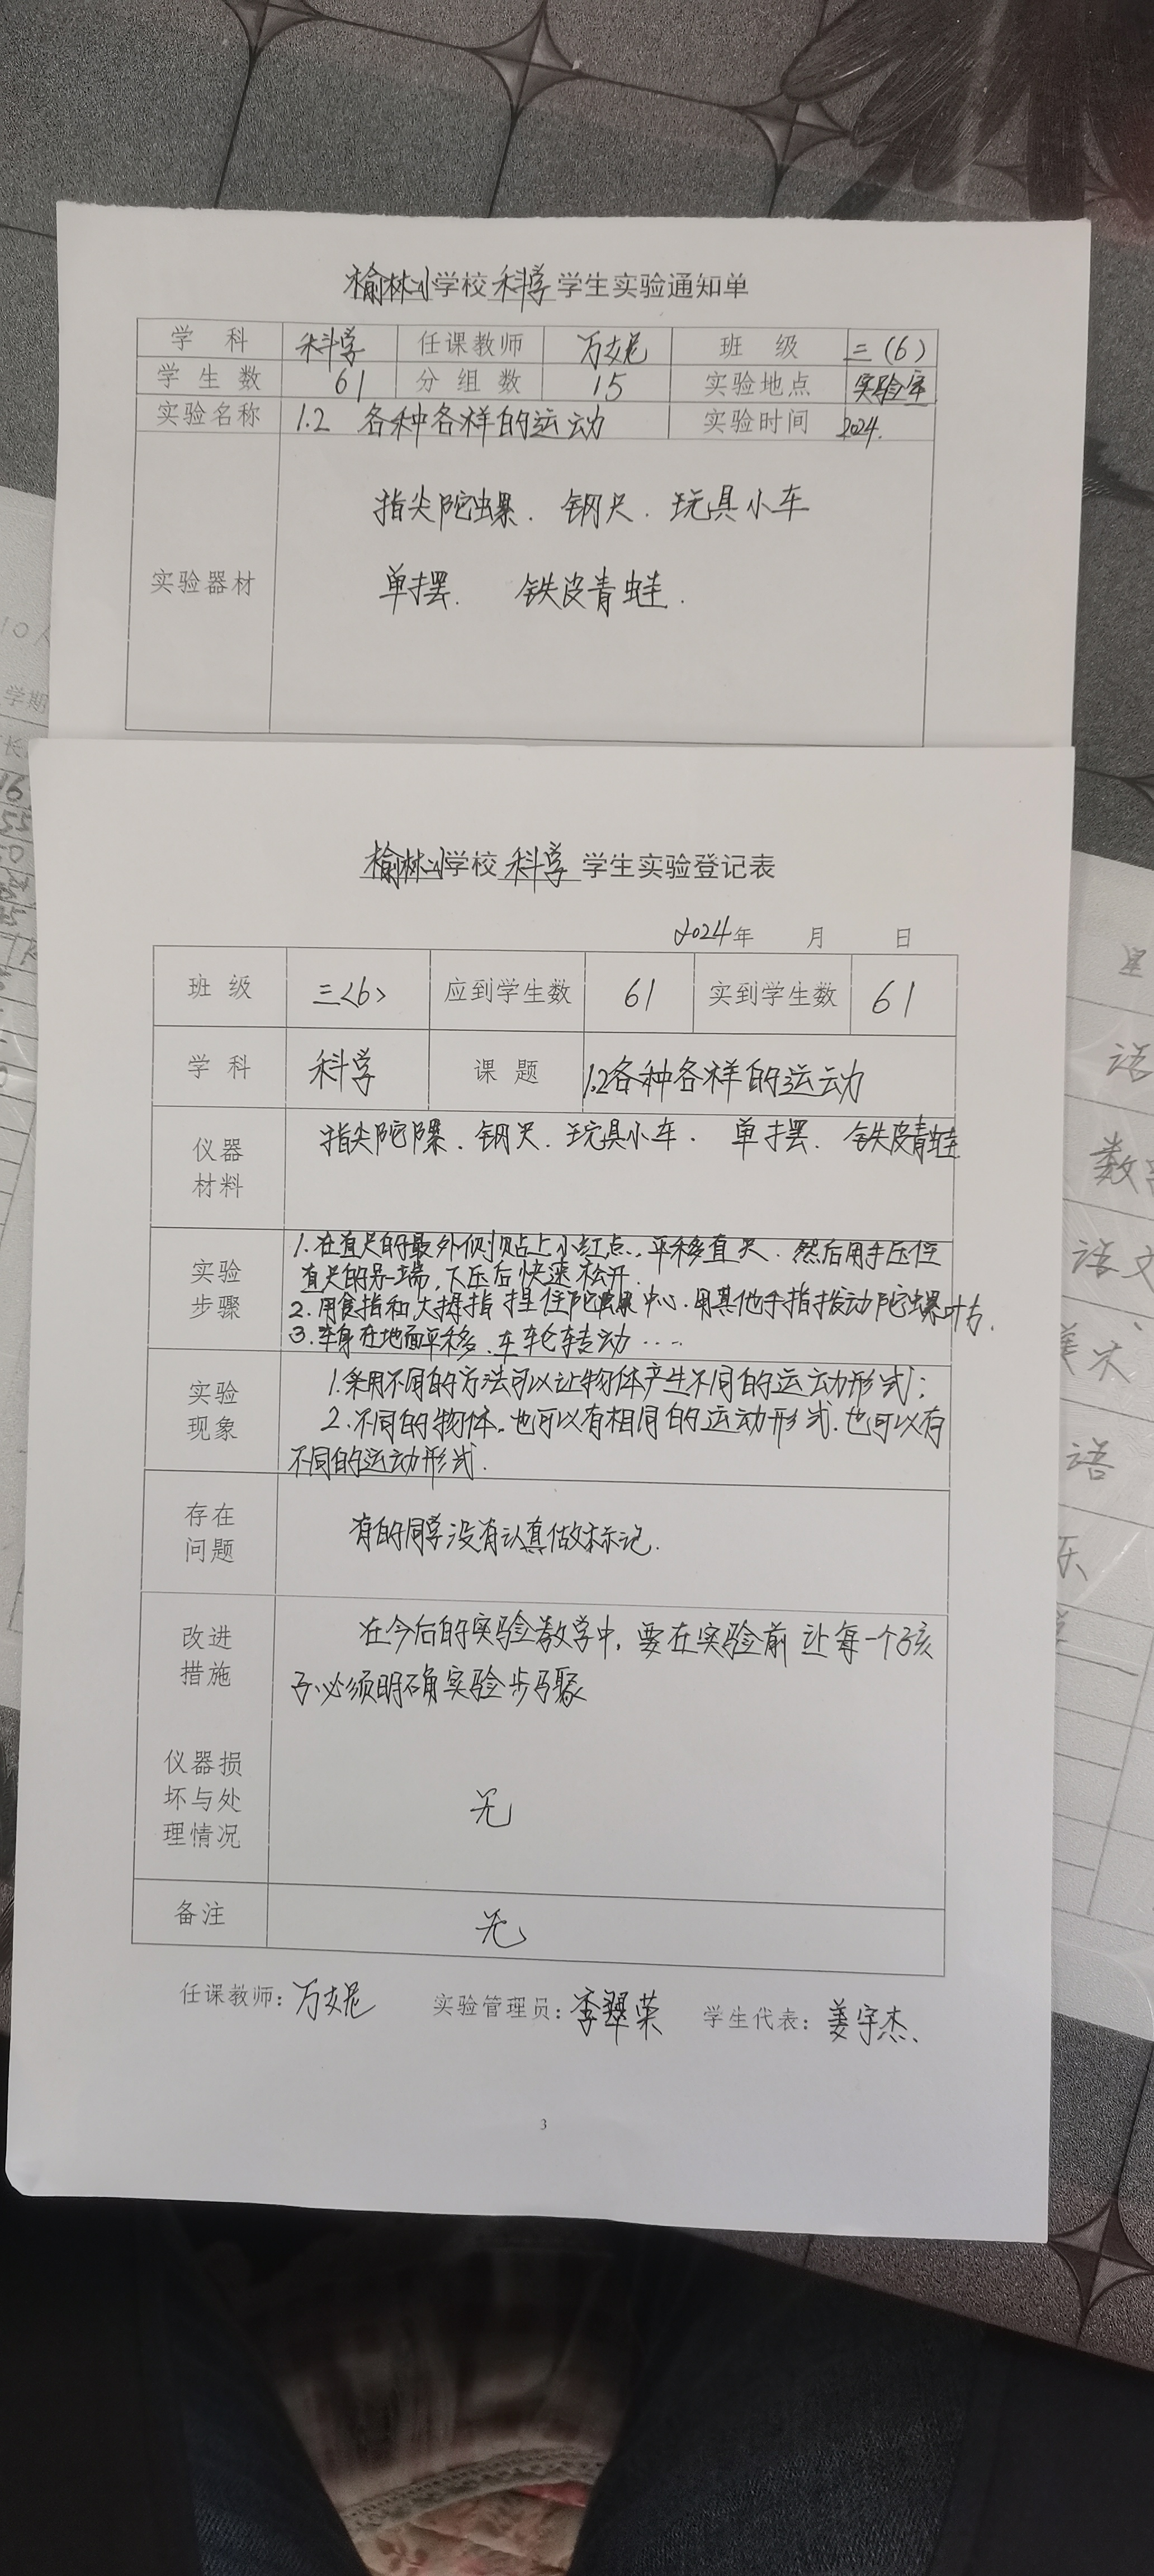 榆林小学校科学学生实验通知单
学 科 科学 任课教师 万文妮 班 级 三(6)
学 生 数 61 分 组 数 15 实验地点 实验室
实验名称 1.2 各种各样的运动 实验时间 2024.
指尖陀螺. 钢尺. 玩具小车
实验器材 单摆. 铁皮青蛙.
榆林小学校科学学生实验登记表
2024年 月 日
班 级 三<6> 应到学生数 61 实到学生数 61
学 科 科学 课 题 1.2各种各样的运动
仪器 指尖陀螺、钢尺、玩具小车. 单摆. 铁皮青蛙
材料
1.在直尺的最外侧贴上小红点, 平移直尺. 然后用手压住
实验 直尺的另一端, 下压后快速松开.
步骤 2.用食指和大拇指捏住陀螺中心.用其他手指拨动陀螺叶片.
3.车身在地面平移、车轮转动……
实验 1.采用不同的方法可以让物体产生不同的运动形式;
现象 2.不同的物体.也可以有相同的运动形式.也可以有
不同的运动形式.
存在
问题 有的同学没有认真做标记.
改进 在今后的实验教学中, 要在实验前让每一个孩
措施 子必须明确实验步骤
仪器损
坏与处 无
理情况
备注 无
任课教师: 万文妮 实验管理员: 李翠荣 学生代表: 姜宇杰、
3
10人
学期
数
语文
语